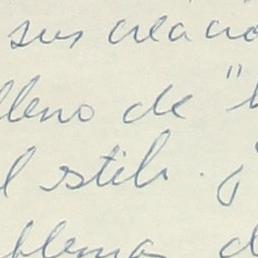 sus creacio
lleno de "
l estilo. ¿
blema d